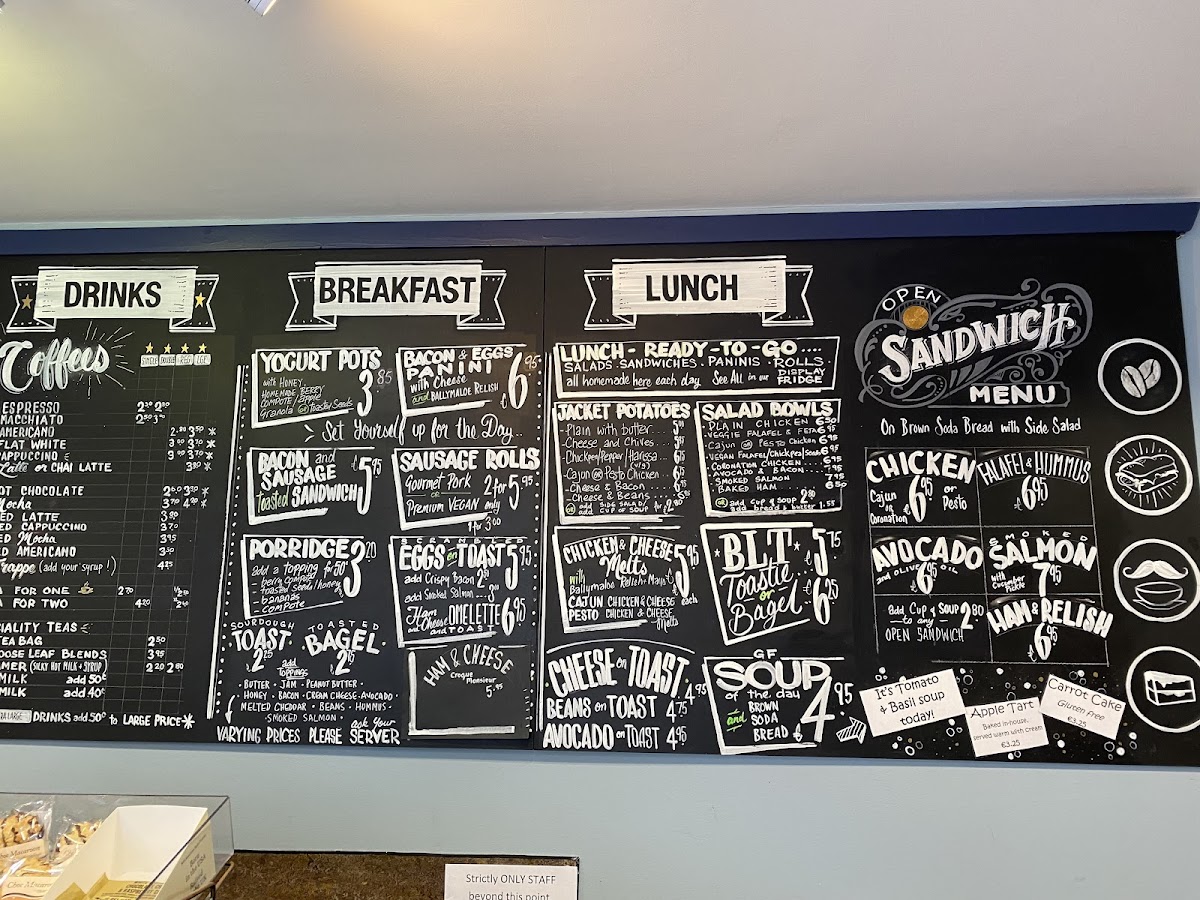 DRINKS
Coffees
ESPRESSO
MACCHIATO
AMERICANO
FLAT WHITE
CAPPUCCINO
Latte or CHAI LATTE
HOT CHOCOLATE
Mocha
ICED LATTE 3.80
ICED CAPPUCCINO 3.70
ICED Mocha 3.95
ICED AMERICANO
Frappe (add your syrup!) 4.25
FOR ONE 2.70
FOR TWO 4.20
TEAS
TEA BAG 2.50
LOOSE LEAF BLENDS 3.95
(SILKY HOT MILK + SYRUP) 2.20 2.80
MILK add 50c
MILK add 40c
DRINKS add 50c to LARGE PRICE*
BREAKFAST
YOGURT POTS
with HONEY
HOMEMADE BERRY
COMPOTE / Apple
Granola or Toasted Seeds
3.85
BACON & EGGS
PANINI
with Cheese
and BALLYMALOE RELISH
€6.95
Set Yourself up for the Day...
BACON and
SAUSAGE
toasted SANDWICH
€5.95
SAUSAGE ROLLS
Gourmet Pork
OR
Premium VEGAN only
2 for 5.95
1 for 3.00
PORRIDGE 3.20
add a topping for 50c
berry compote
toasted seeds / honey
bananas
compote
SCRAMBLED
EGGS on TOAST 5.95
add Crispy Bacon
add Smoked Salmon
Ham and Cheese OMELETTE 6.95
and TOAST
SOURDOUGH
TOAST
2.25
TOASTED
BAGEL
2.75
add
toppings
BUTTER · JAM · PEANUT BUTTER ·
HONEY · BACON · CREAM CHEESE · AVOCADO
MELTED CHEDDAR · BEANS · HUMMUS ·
· SMOKED SALMON ·
ask Your
VARYING PRICES PLEASE SERVER
HAM & CHEESE
Croque
Monsieur
5.95
LUNCH
LUNCH - READY-TO-GO....
SALADS . SANDWICHES . PANINIS . ROLLS .
all homemade here each day. See All in our DISPLAY FRIDGE
JACKET POTATOES
Plain with butter
Cheese and Chives
Chickpea/Pepper/Harissa
(v/g)
Cajun or Pesto Chicken
Cheese & Bacon
Cheese & Beans
or add SIDE SALAD / add CUP of SOUP for 2.80
SALAD BOWLS
PLAIN CHICKEN 6.50
VEGGIE FALAFEL & FETA 6.95
Cajun or Pesto Chicken 6.95
VEGAN FALAFEL/Chickpeas/Soup 6.95
CORONATION CHICKEN 6.95
AVOCADO & BACON 7.95
SMOKED SALMON 7.95
BAKED HAM 6.95
or add cup of soup 2.80
add bread & butter 1.55
CHICKEN & CHEESE
Melts
with
Ballymaloe Relish + Mayo
€5.95
each
CAJUN CHICKEN & CHEESE
PESTO CHICKEN & CHEESE
Melts
BLT
Toastie
or
Bagel
€5.75
€6.25
CHEESE on TOAST 4.95
BEANS on TOAST 4.75
AVOCADO on TOAST 4.95
GF
SOUP
of the day
and BROWN
SODA
BREAD
€4.95
OPEN
SANDWICH
MENU
On Brown Soda Bread with Side Salad
CHICKEN
Cajun or Pesto
or
Coronation
€6.95
FALAFEL & HUMMUS
€6.95
AVOCADO
and OLIVE OIL
€6.95
SMOKED
SALMON
with
Cucumber
Pickle
7.95
add Cup of SOUP 2.80
- to any -
OPEN SANDWICH
HAM & RELISH
€6.95
It's Tomato
& Basil soup
today!
Apple Tart
Baked in-house,
served warm with cream
€3.25
Carrot Cake
Gluten Free
€3.25
Strictly ONLY STAFF
beyond this point